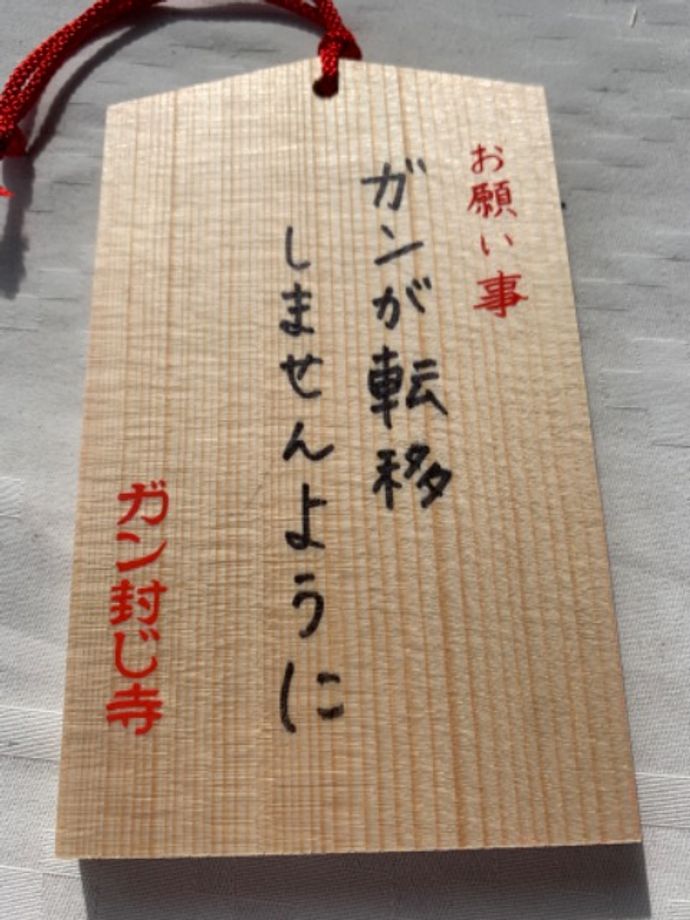 お願い事
ガンが転移
しませんように
ガン封じ寺